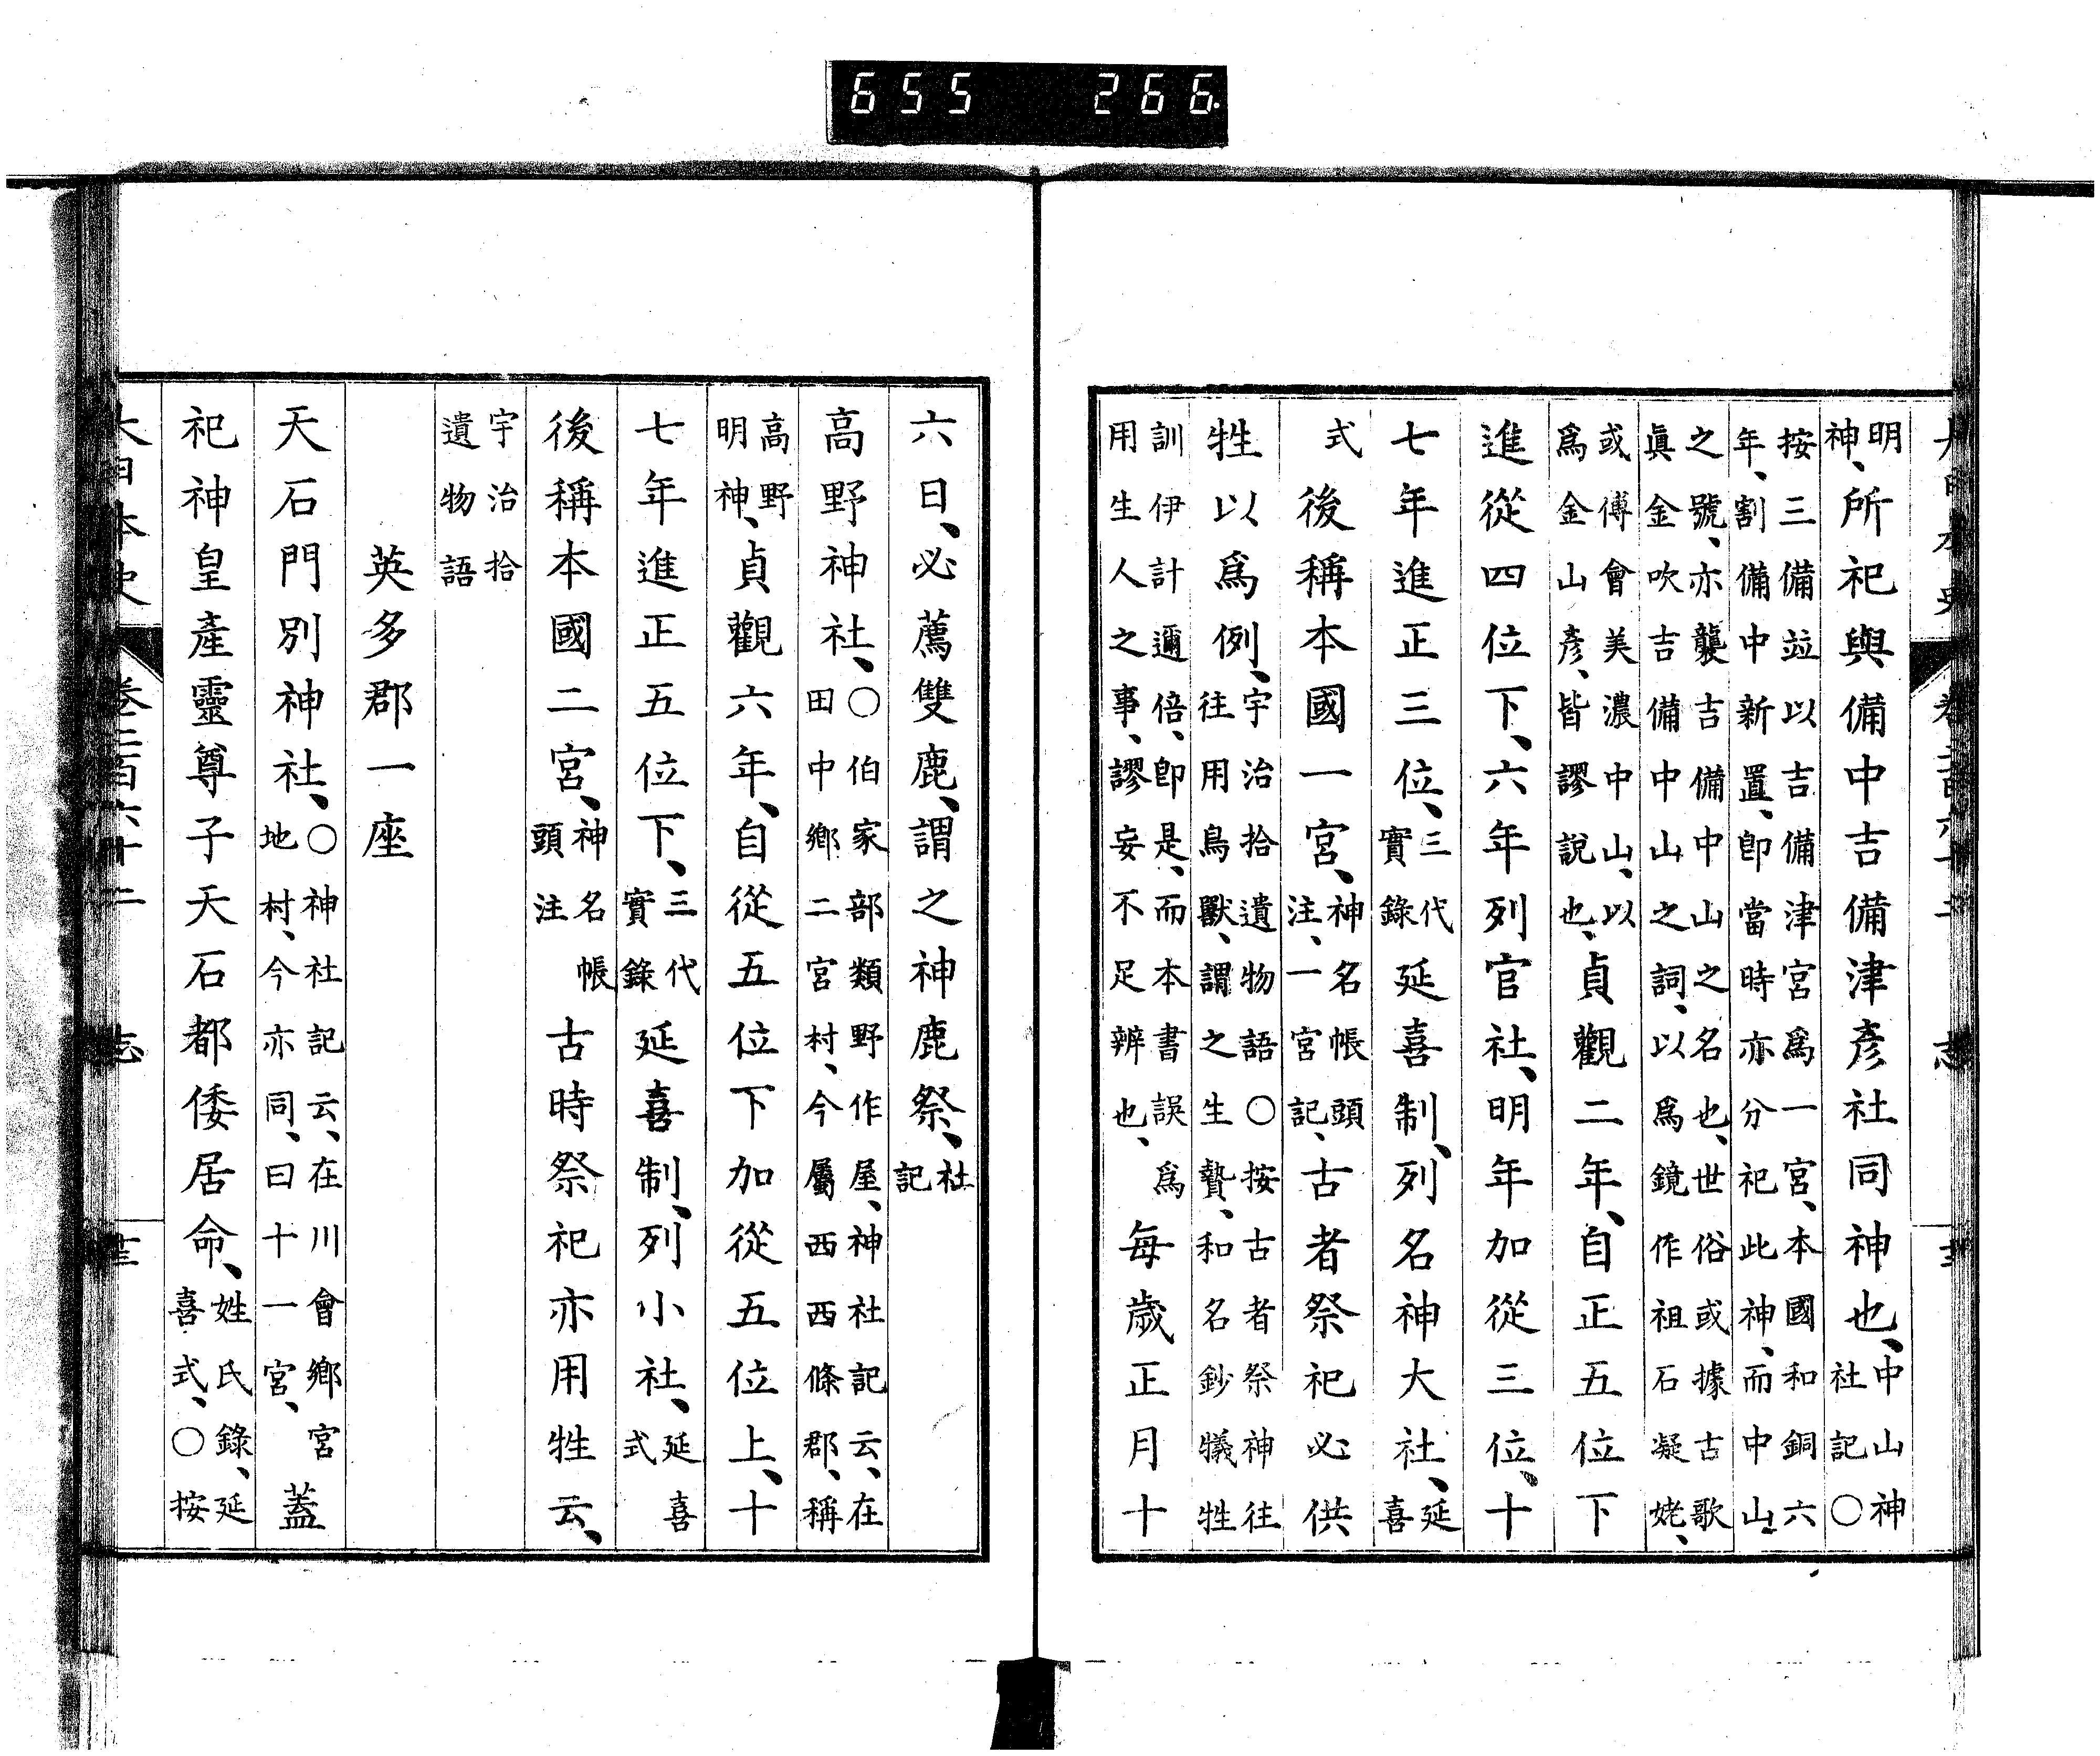 655 266
明神、所祀與備中吉備津彥社同神也、中山神社記〇
按三備竝以吉備津宮爲一宮、本國和銅六年、割備中新置、卽當時亦分祀此神、而中山
之號、亦襲吉備中山之名也、世俗或據古歌眞金吹吉備中山之詞、以爲鏡作祖石凝姥、
或傅會美濃中山、以爲金山彥、皆謬說也、貞觀二年、自正五位下
進從四位下、六年列官社、明年加從三位、十
七年進正三位、三代實錄延喜制、列名神大社、延喜
式後稱本國一宮、神名帳頭注、一宮記、古者祭祀必供
牲以爲例、宇治拾遺物語〇按古者祭神往往用鳥獸、謂之生贄、和名鈔犧牲
訓伊計邇倍、卽是、而本書誤爲用生人之事、謬妄不足辨也、每歲正月十
六日、必薦雙鹿、謂之神鹿祭、社記
高野神社、〇伯家部類野作屋、神社記云、在田中鄕二宮村、今屬西西條郡、稱
高野明神、貞觀六年、自從五位下加從五位上、十
七年進正五位下、三代實錄延喜制、列小社、延喜式
後稱本國二宮、神名帳頭注古時祭祀亦用牲云、
宇治拾遺物語
英多郡一座
天石門別神社、〇神社記云、在川會鄕宮地村、今亦同、曰十一宮、蓋
祀神皇產靈尊子天石都倭居命、姓氏錄、延喜式、〇按
大日本史 卷二百六十二 志